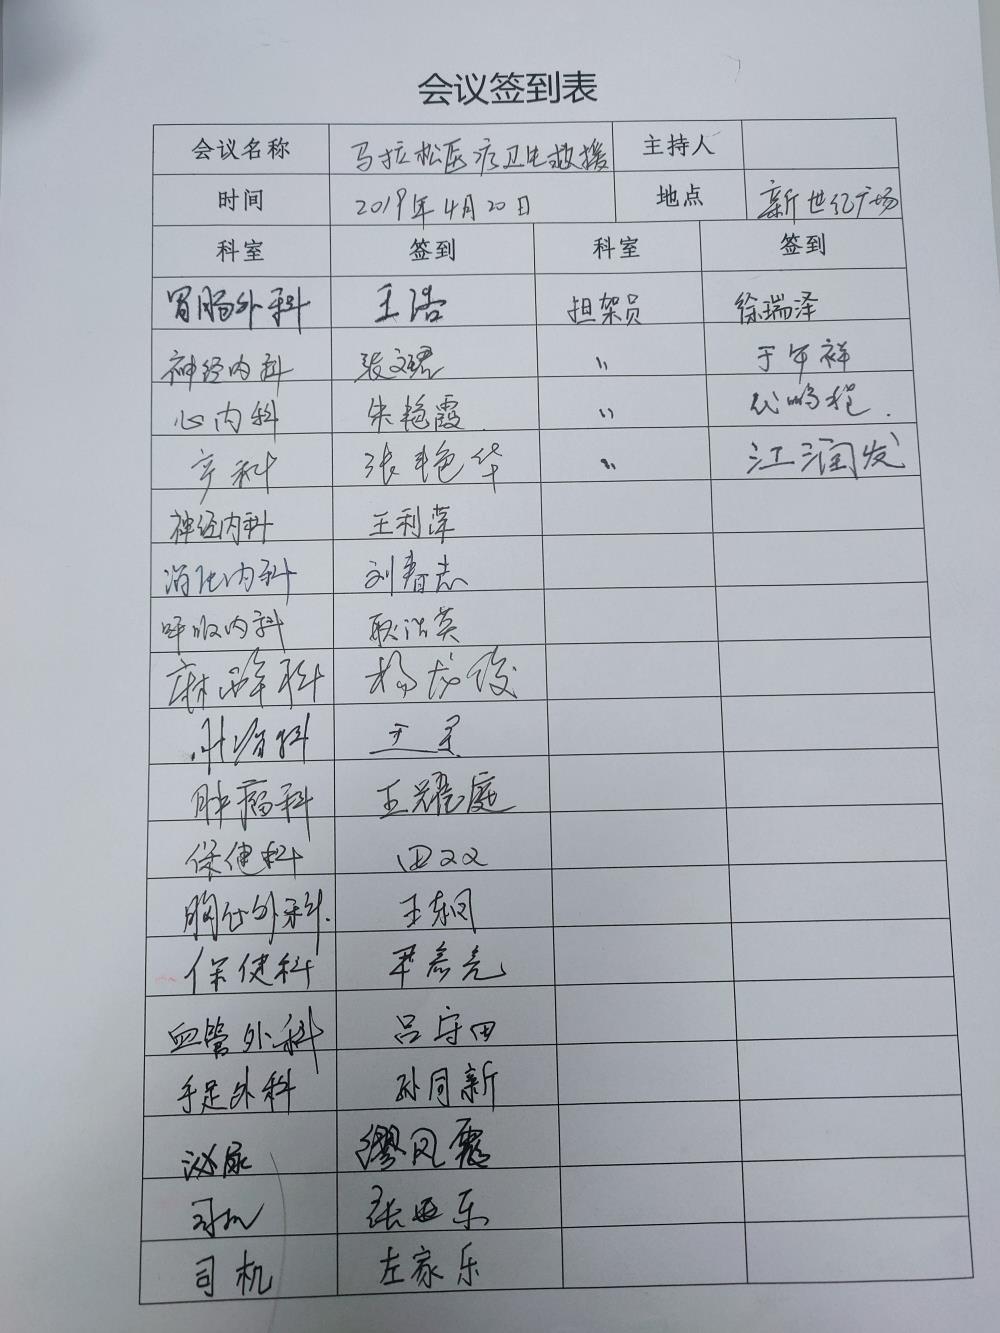 会议签到表
会议名称 马拉松医疗卫生救援 主持人
时间 2019年4月20日 地点 新世纪广场
科室 签到 科室 签到
胃肠外科 王浩 担架员 徐瑞泽
神经内科 张文珺 〃 于年祥
心内科 朱艳霞 〃 代鹏程
产科 张艳华 〃 江润发
神经内科 王利萍
消化内科 刘春志
呼吸内科 耿浩英
麻醉科 杨龙俊
科
肿瘤科 王耀庭
保健科 田双
胸外科 王东同
保健科
血管外科 吕守田
手足外科 孙同新
泌尿 缪风霞
司机 张亚东
司机 左家乐